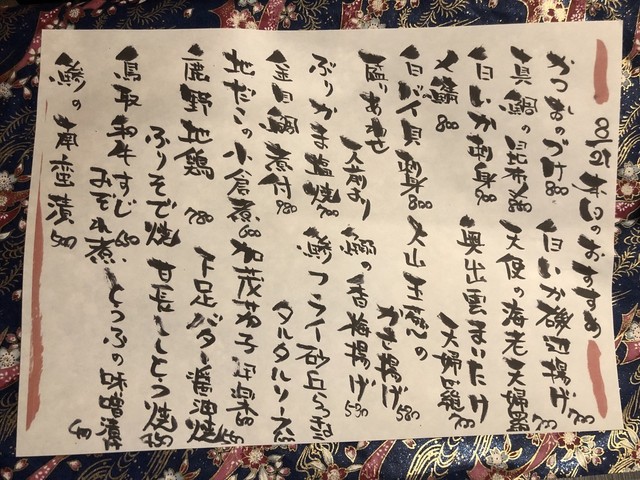 8/21 本日のおすすめ
かつおのづけ 800
白いか磯辺揚げ 700
真鯛の昆布〆 800
天使の海老天婦羅
白いか刺身 900
奥出雲まいたけ
天婦羅 700
〆鯖 800
白バイ貝刺身 800
大山玉ねぎの
かき揚げ 580
盛りあわせ
一人前より
鰯の香梅揚げ 500
ぶりかま塩焼 700
鯵フライ 砂丘らっきょ
タルタルソース
金目鯛煮付 980
地だこの小倉煮 680
加茂茄子田楽
鹿野地鶏
ぶりそで焼 780
下足バター醤油焼
鳥取和牛すじ
みぞれ煮 680
甘長ししとう焼 450
鯵の南蛮漬 500
とうふの味噌漬